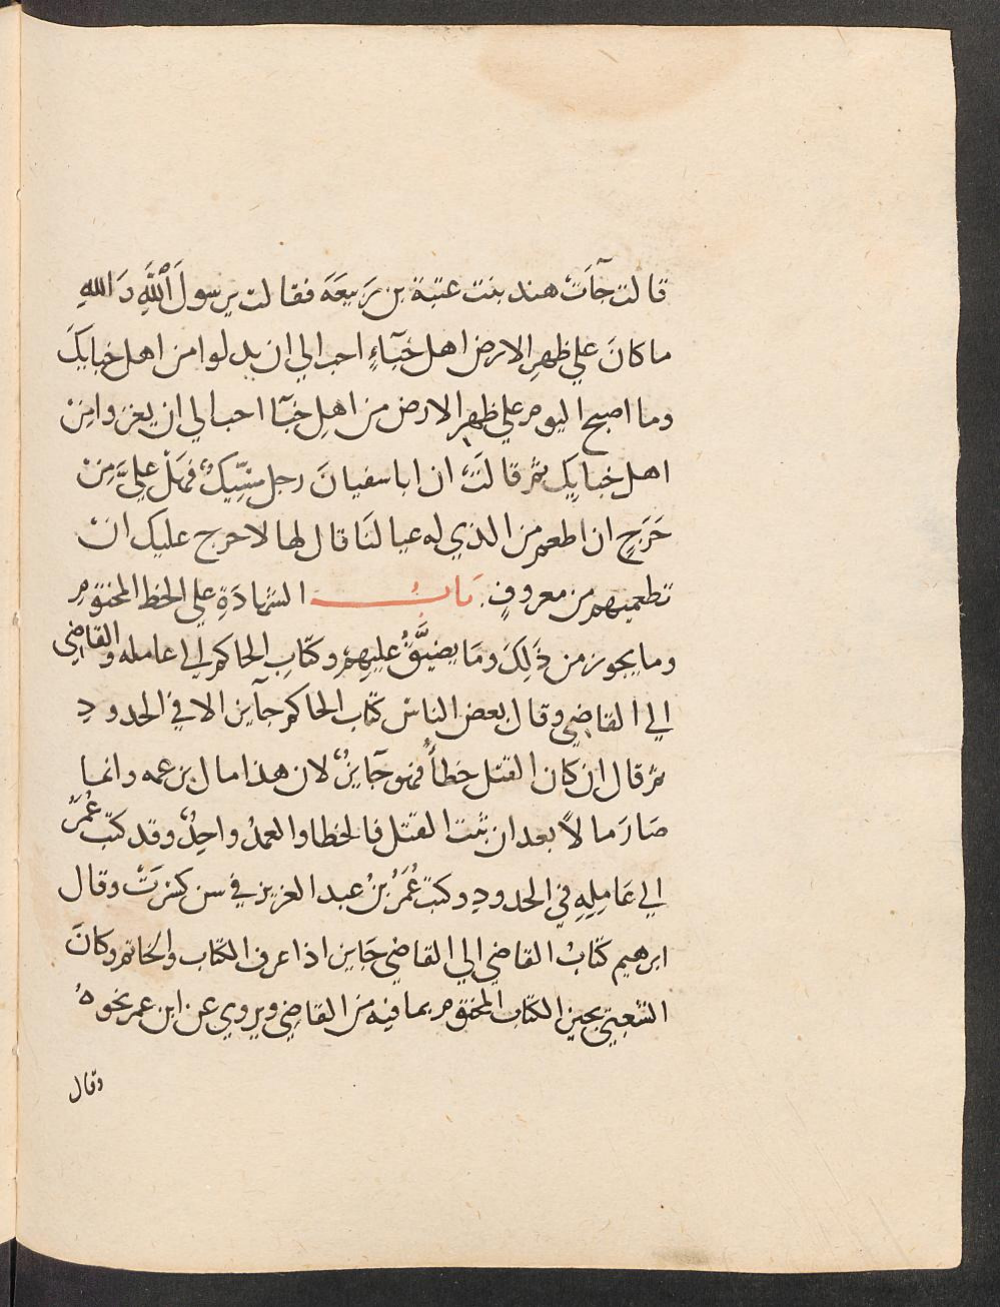 قالت جآت هند بنت عتبة بن رَبيعَةَ فقالت يرسولَ اللَّهِ وَاللهِ
ما كانَ علي ظهرِ الارض اهل خبآءٍ احب الي ان يذلوا من اهل خبايكَ
وما اصبح اليوم علي ظهر الارض من اهل خبآ احب الي ان يعزوا مِنْ
اهل خبايِك ثم قالَت ان اباسفيانَ رجل مسِّيكٌ فهَلْ عليَّ مِنْ
حَرَجٍ ان اطعم من الذي له عيالنَا قال لها لا حرج عليك انْ
تطعميهم من معروفٍ بَابُ الشهادَةِ علي الخط المختومِ
وما يجوز من ذَلِكَ ومَا يضيَّقُ عليهِم وكتَابِ الحاكم الي عامله والقاضِي
الي القاضي وقال بعض الناسْ كتَاب الحاكم جآيز الا في الحدودِ
ثم قال ان كان القتل خطأً فهو جآيزٌ لان هذا مال بزعمه وانما
صَارَ مالاً بعد ان ثبت القتل فالخطا والعمدُ واحِدٌ وقد كتب عُمَرُ
الي عَامِلِهِ في الحدودِ وكتبَ عُمَرُ بْنُ عبد العزيز في سن كسرتْ وقال
ابرهيم كتَابُ القاضي الي القاضي جَايز اذا عرف الكتاب والخاتم وكانَ
الشعبيّ يجيز الكتاب المختوم بما فيه من القاضِي ويروي عن ابن عمر نحوهُ
وقال